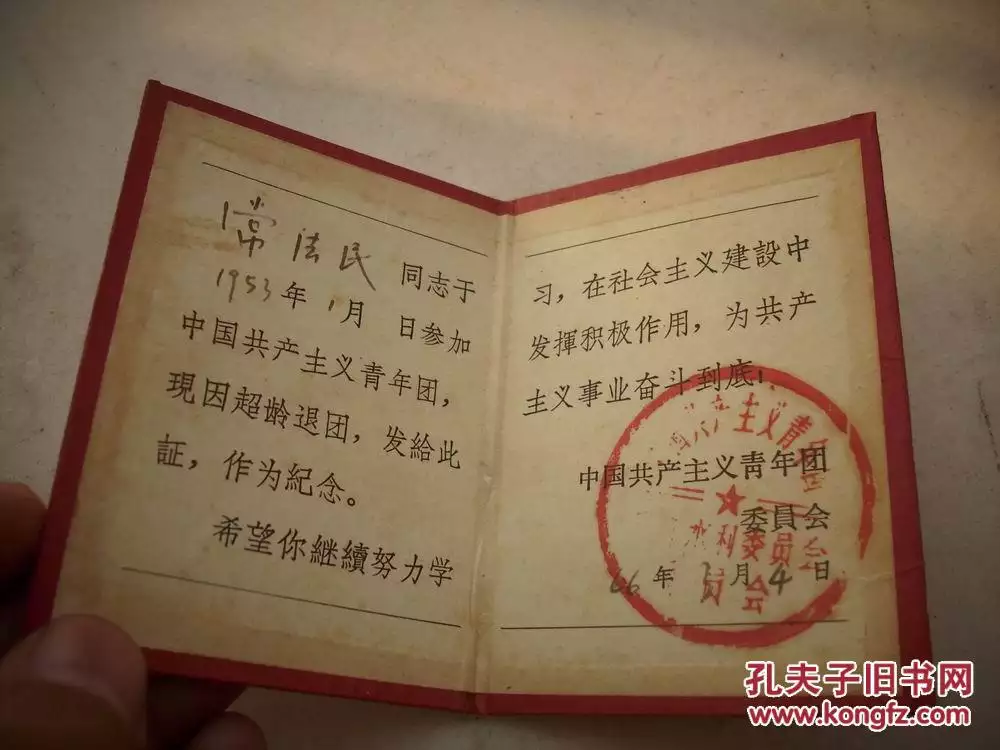 常法民 同志于
1953年1月 日参加
中国共产主义青年团，
現因超龄退团，发給此
証，作为紀念。
希望你継續努力学
习，在社会主义建設中
发揮积极作用，为共产
主义事业奋斗到底！
中国共产主义青年团
委員会
66年3月4日
产主义青
委員会
孔夫子旧书网
www.kongfz.com